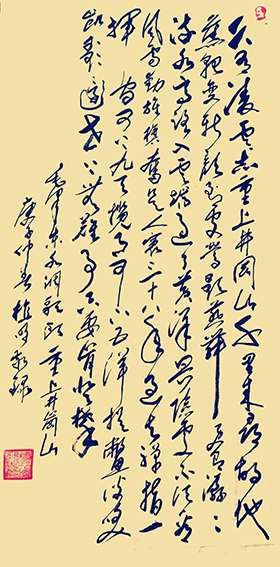 久有凌云志重上井冈山千里来寻故地
旧貌变新颜到处莺歌燕舞更有潺々
流水高路入云端过了黄洋界险处不须看
风雷动旌旗奋是人寰三十八年过去弹指一
挥间可上九天揽月可下五洋捉鳖谈笑
凯歌还世上无难事只要肯登攀
毛泽东水调歌头重上井岗山
庚子仲春植 敬录